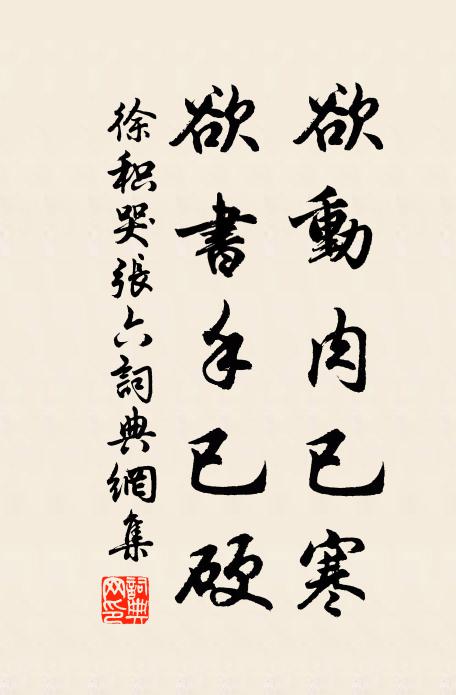 欲動肉已寒
欲書手已硬
徐积哭張六詞典網集
詞典網印